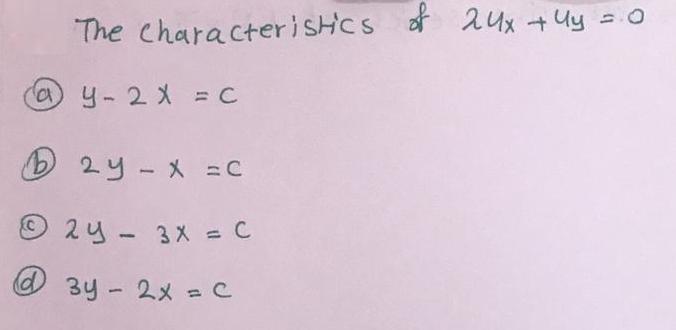 The characteristics of 2ux + uy = 0
(a) y - 2x = c
(b) 2y - x = c
(c) 2y - 3x = c
(d) 3y - 2x = c